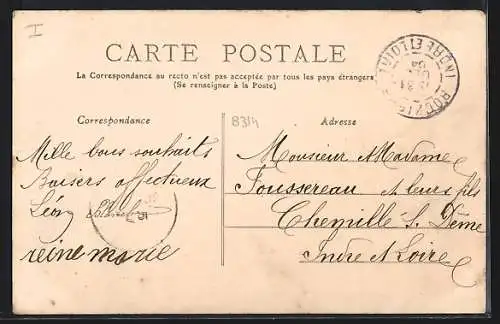 I
CARTE POSTALE
La Correspondance au recto n'est pas acceptée par tous les pays étrangers
(Se renseigner à la Poste)
INDRE ET LOIRE
31
DEC
04
Correspondance
8314
Adresse
Mille bons souhaits
Baisers affectueux
Léon
reine marie
Monsieur & Madame
Toussereau & leurs fils
Chemille S. Dême
Indre & Loire